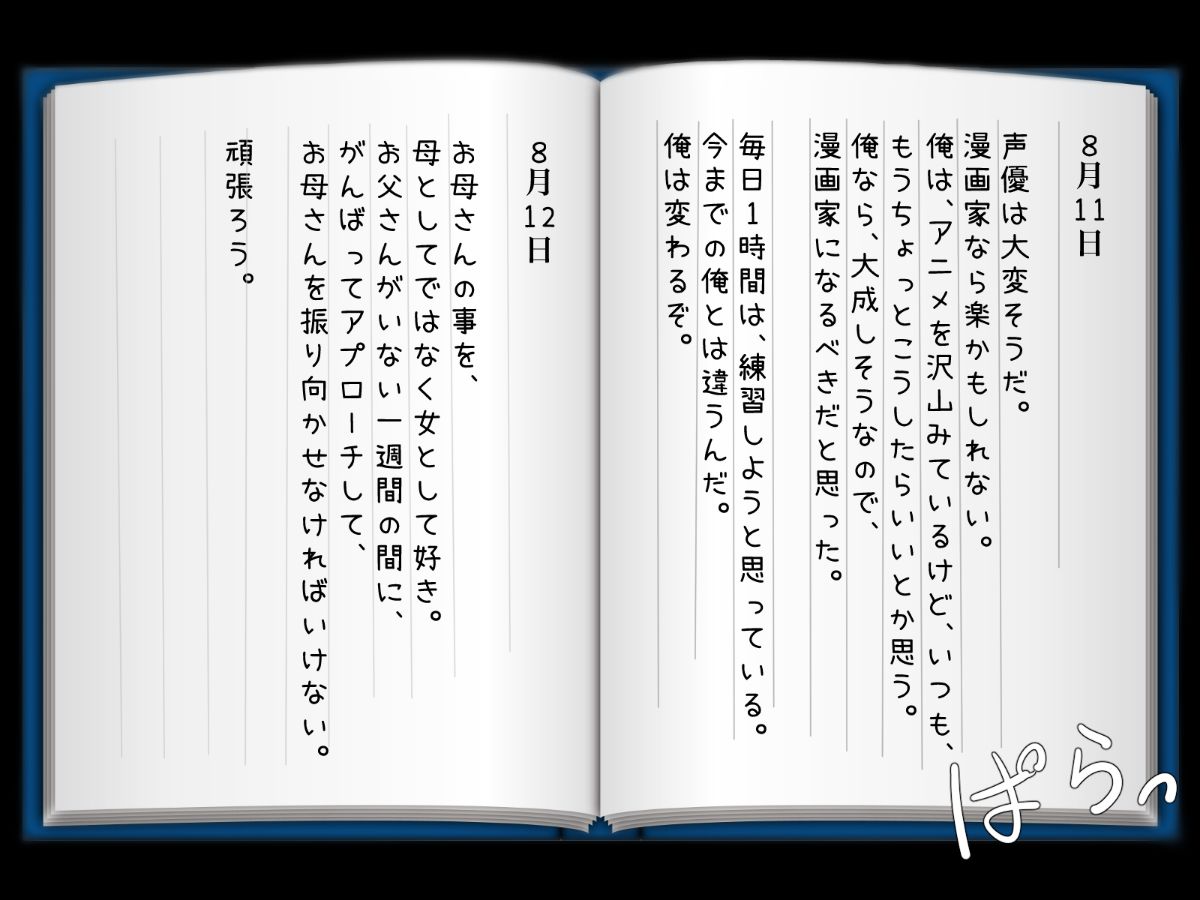 8月11日
声優は大変そうだ。
漫画家なら楽かもしれない。
俺は、アニメを沢山みているけど、いつも、
もうちょっとこうしたらいいとか思う。
俺なら、大成しそうなので、
漫画家になるべきだと思った。
毎日1時間は、練習しようと思っている。
今までの俺とは違うんだ。
俺は変わるぞ。
8月12日
お母さんの事を、
母としてではなく女として好き。
お父さんがいない一週間の間に、
がんばってアプローチして、
お母さんを振り向かせなければいけない。
頑張ろう。
ぱらっ